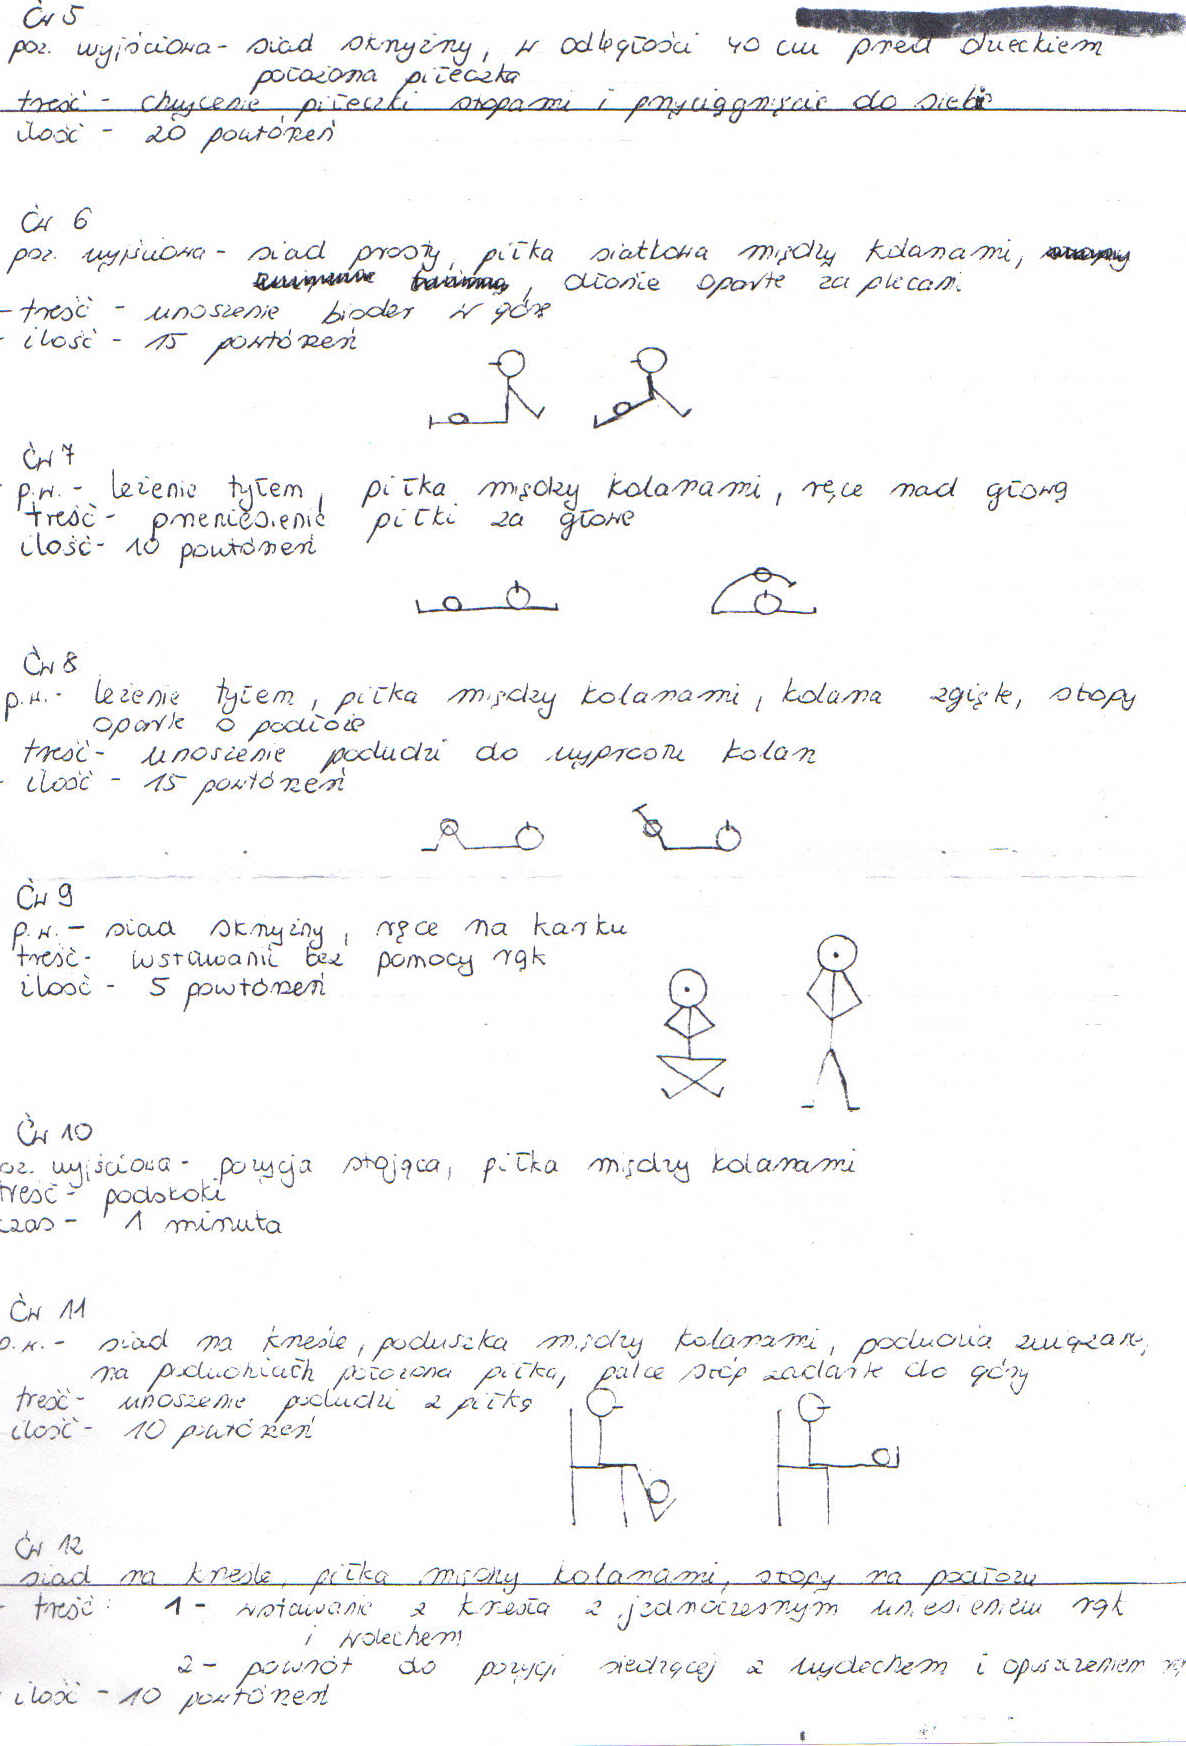 Ćw 5
poz. wyjściowa - siad skrzyżny, w odległości 40 cm przed dzieckiem
położona piłeczka
treść - chwycenie piłeczki stopami i przyciągnięcie do siebie
ilość - 20 powtórzeń
Ćw 6
poz. wyjściowa - siad prosty, piłka siatkowa między kolanami,
, dłonie oparte za plecami.
- treść - unoszenie bioder w górę
- ilość - 15 powtórzeń
Ćw 7
p.w. - leżenie tyłem, piłka między kolanami, ręce nad głową
treść - przeniesienie piłki za głowę
ilość - 10 powtórzeń
Ćw 8
p.w. - leżenie tyłem, piłka między kolanami, kolana zgięte, stopy
oparte o podłoże
treść - unoszenie podudzi do wyprostu kolan
- ilość - 15 powtórzeń
Ćw 9
p.w. - siad skrzyżny, ręce na karku
treść - wstawanie bez pomocy rąk
ilość - 5 powtórzeń
Ćw 10
oz. wyjściowa - pozycja stojąca, piłka między kolanami
treść - podskoki
czas - 1 minuta
Ćw 11
p.w. - siad na krześle, poduszka między kolanami, podudzia związane,
na podudziach położona piłka, palce stóp zadarte do góry
treść - unoszenie podudzi z piłką
ilość - 10 powtórzeń
Ćw 12
siad na krześle, piłka między kolanami, stopy na podłożu
- treść: 1 - wstawanie z krzesła z jednoczesnym uniesieniem rąk
i wdechem
2 - powrót do pozycji siedzącej z wydechem i opuszczeniem
- ilość - 10 powtórzeń